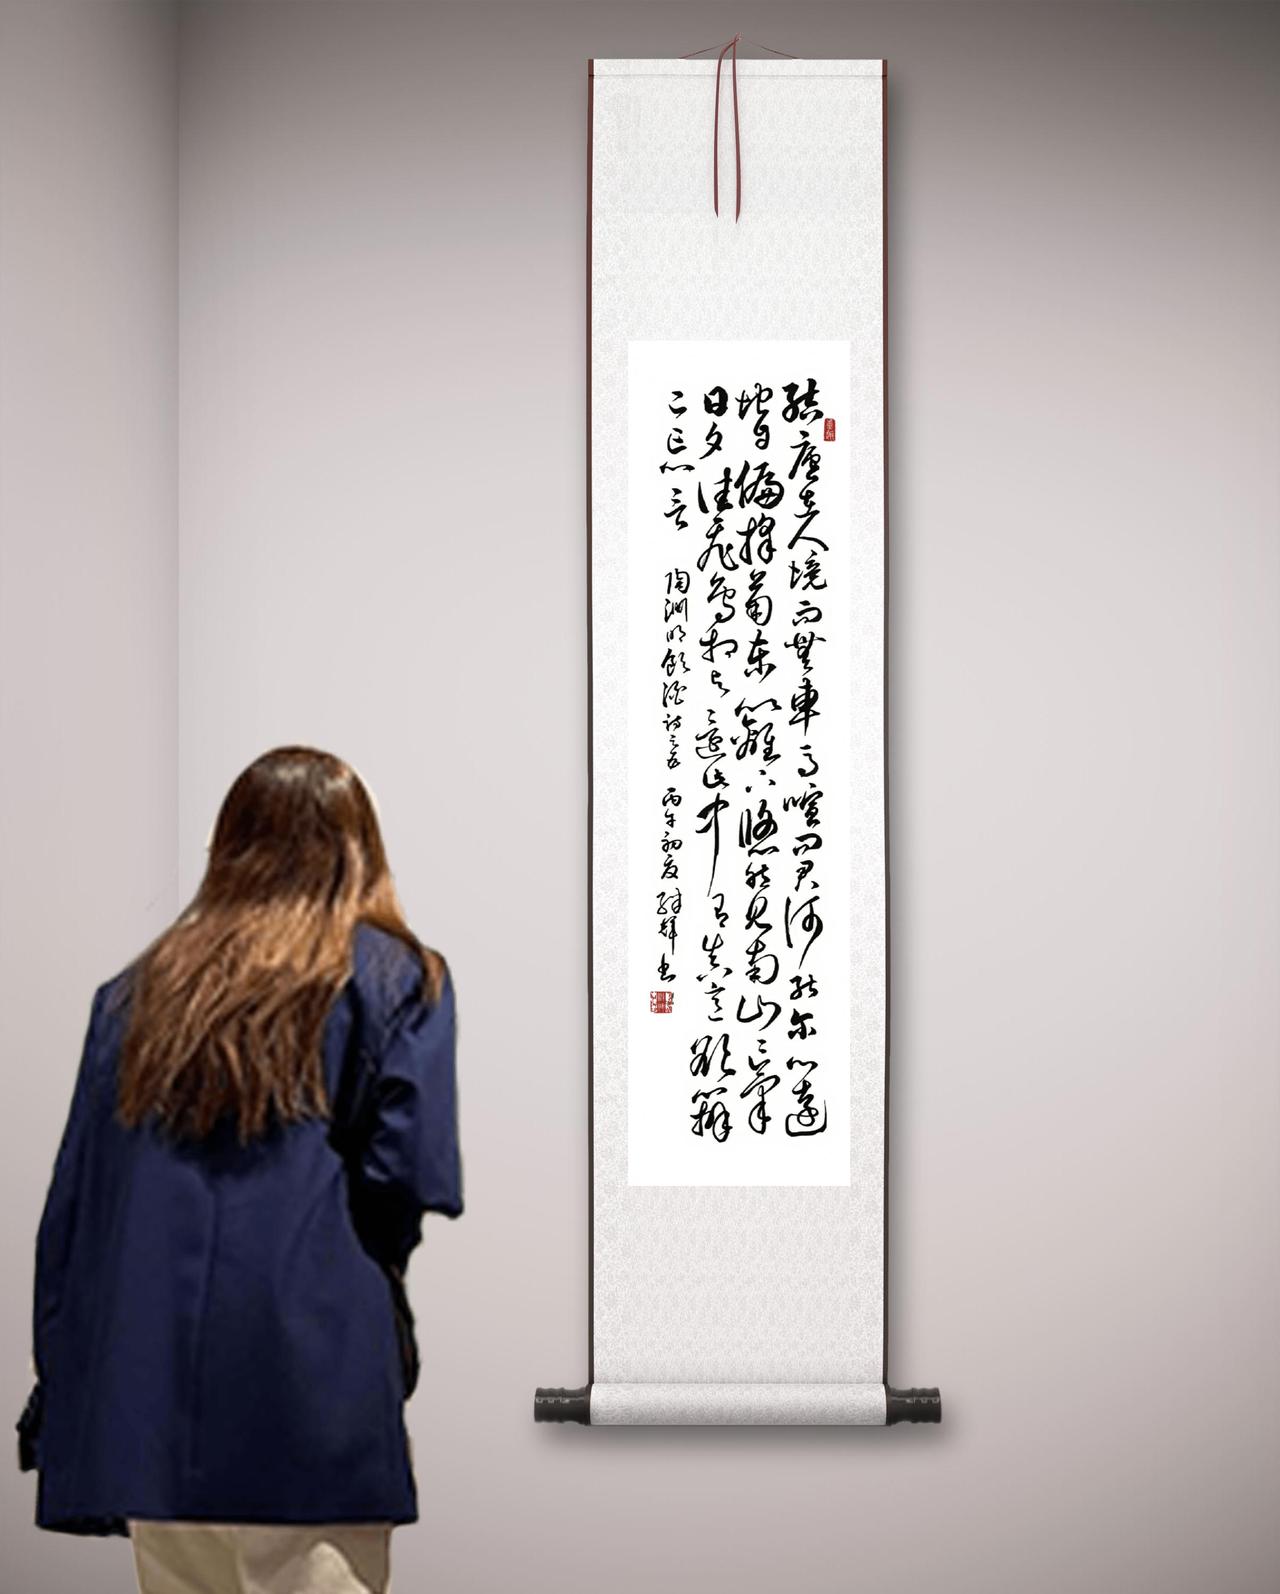 結廬在人境而無車馬喧問君何能尔心遠
地自偏採菊東籬下悠然見南山山氣
日夕佳飛鳥相與還此中有真意欲辨
已忘言
陶淵明飲酒詩之五 丙午初夏 書